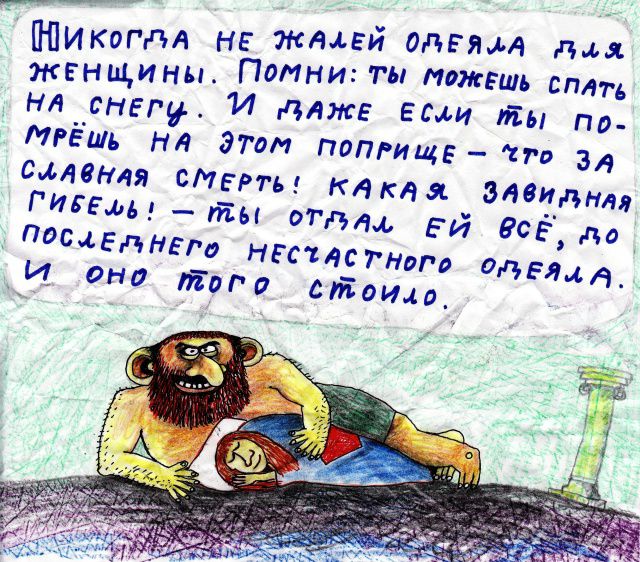 Никогда не жалей одеяла для
женщины. Помни: ты можешь спать
на снегу. И даже если ты по-
мрёшь на этом поприще – что за
славная смерть! какая завидная
гибель! – ты отдал ей всё, до
последнего несчастного одеяла.
И оно того стоило.